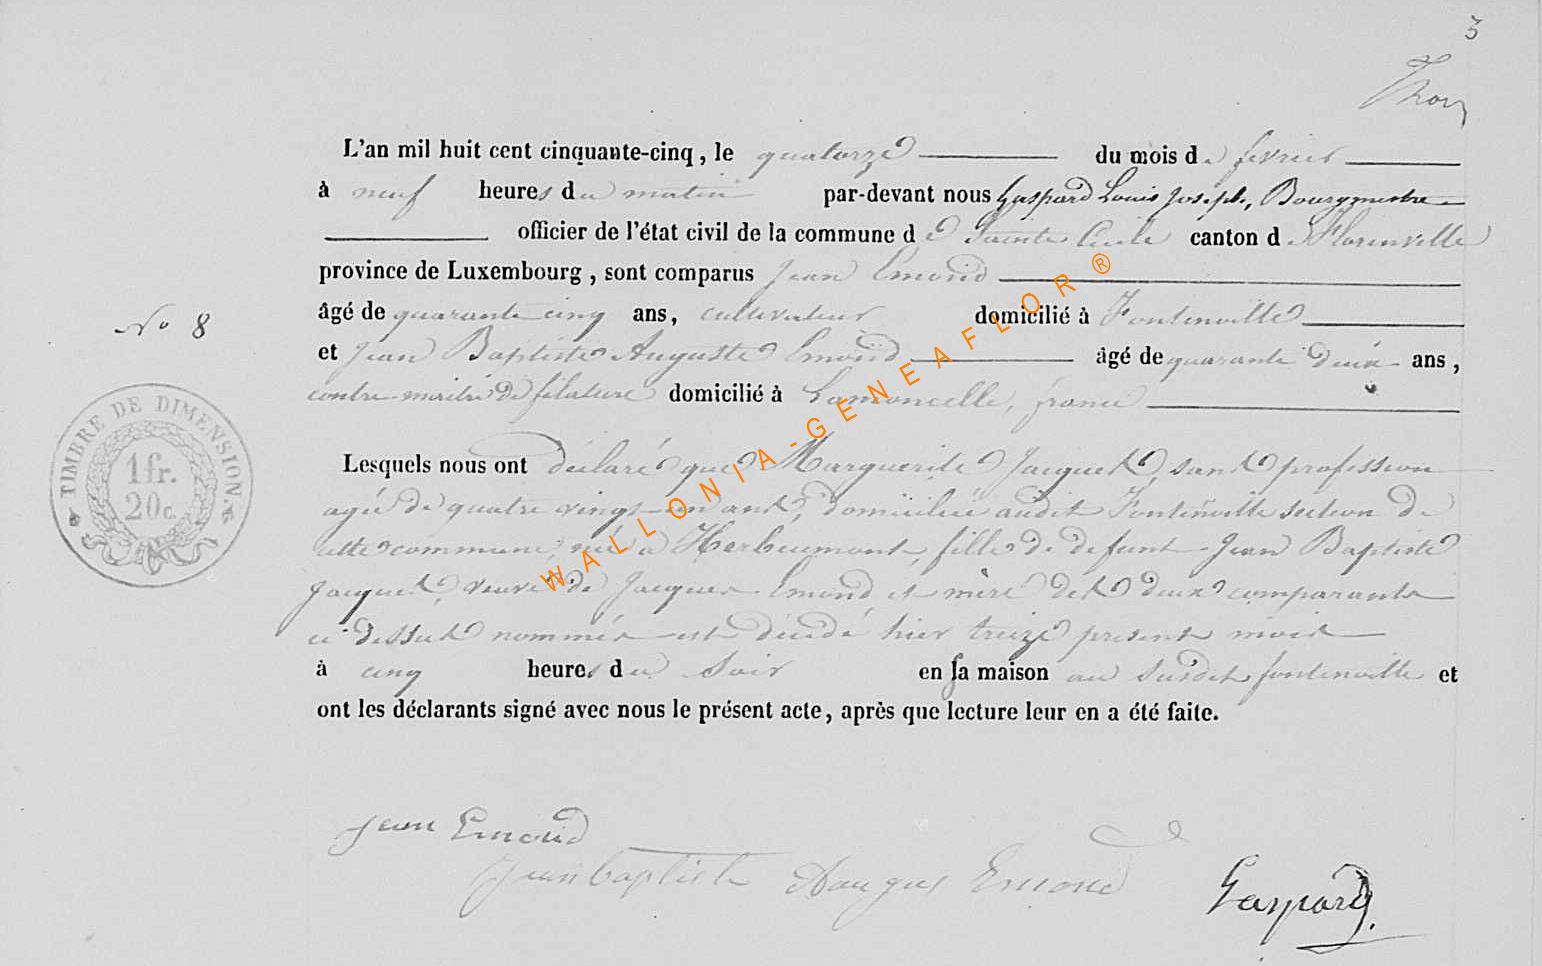 3
L'an mil huit cent cinquante-cinq, le quatorze du mois de fevrier
à neuf heures du matin par-devant nous Gaspard Louis Joseph, Bourgmestre
officier de l'état civil de la commune de Sainte Cécile canton de Florenville
province de Luxembourg, sont comparus Jean Emond
âgé de quarante cinq ans, cultivateur domicilié à Fontenoille
N° 8
et Jean Baptiste Auguste Emond âgé de quarante deux ans,
contre-maitre de filature domicilié à Lamoncelle, france
TIMBRE DE DIMENSION.
1fr.
20c.
Lesquels nous ont déclaré que Marguerite Jacquet, sans profession
agée de quatre vingt-un ans, domiciliée audit Fontenoille section de
cette commune, née à Herbeumont, fille de defunt Jean Baptiste
Jacquet, veuve de Jacques Emond et mère des deux comparants
ci-dessus nommés est décédé hier treize présent mois
à cinq heures du soir en sa maison au susdit fontenoille et
ont les déclarants signé avec nous le présent acte, après que lecture leur en a été faite.
Jean Emond
Jean baptiste Emond
Gaspard.
WALLONIA-GENEAFLOR®